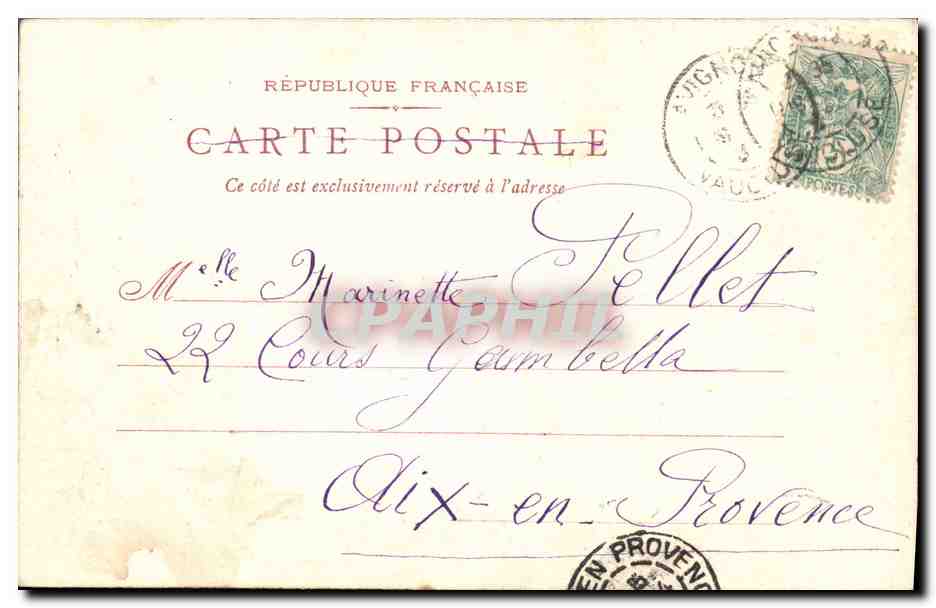 RÉPUBLIQUE FRANÇAISE
CARTE POSTALE
Ce côté est exclusivement réservé à l'adresse
AVIGNON
VAUCLUSE
POSTES
Melle Marinette Pellet
22 Cours Gambetta
Aix-en-Provence
EN PROVENC
CPAPHIL